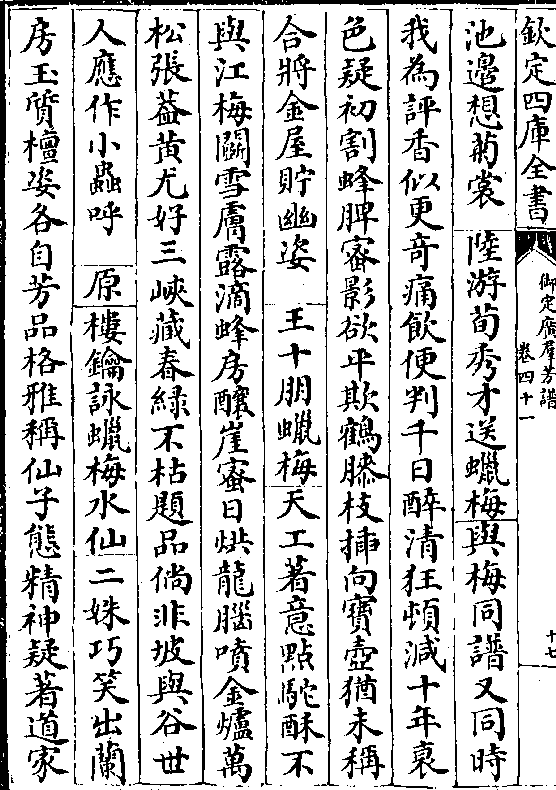 欽定四庫全書
御定廣羣芳譜
卷四十一
十七
池邊想菊裳 陸游荀秀才送蠟梅 與梅同譜又同時
我為評香似更奇痛飲便判千日醉清狂頓減十年衰
色疑初割蜂脾蜜影欲平欺鶴膝枝插向寶壺猶未稱
合將金屋貯幽姿 王十朋蠟梅 天工著意點駝酥不
與江梅鬬雪膚露滴蜂房釀崖蜜日烘龍腦噴金爐萬
松張蓋黃尤好三峽藏春綠不枯題品倘非坡與谷世
人應作小蟲呼 原 樓鑰詠蠟梅水仙 二姝巧笑出蘭
房玉質檀姿各自芳品格雅稱仙子態精神疑著道家